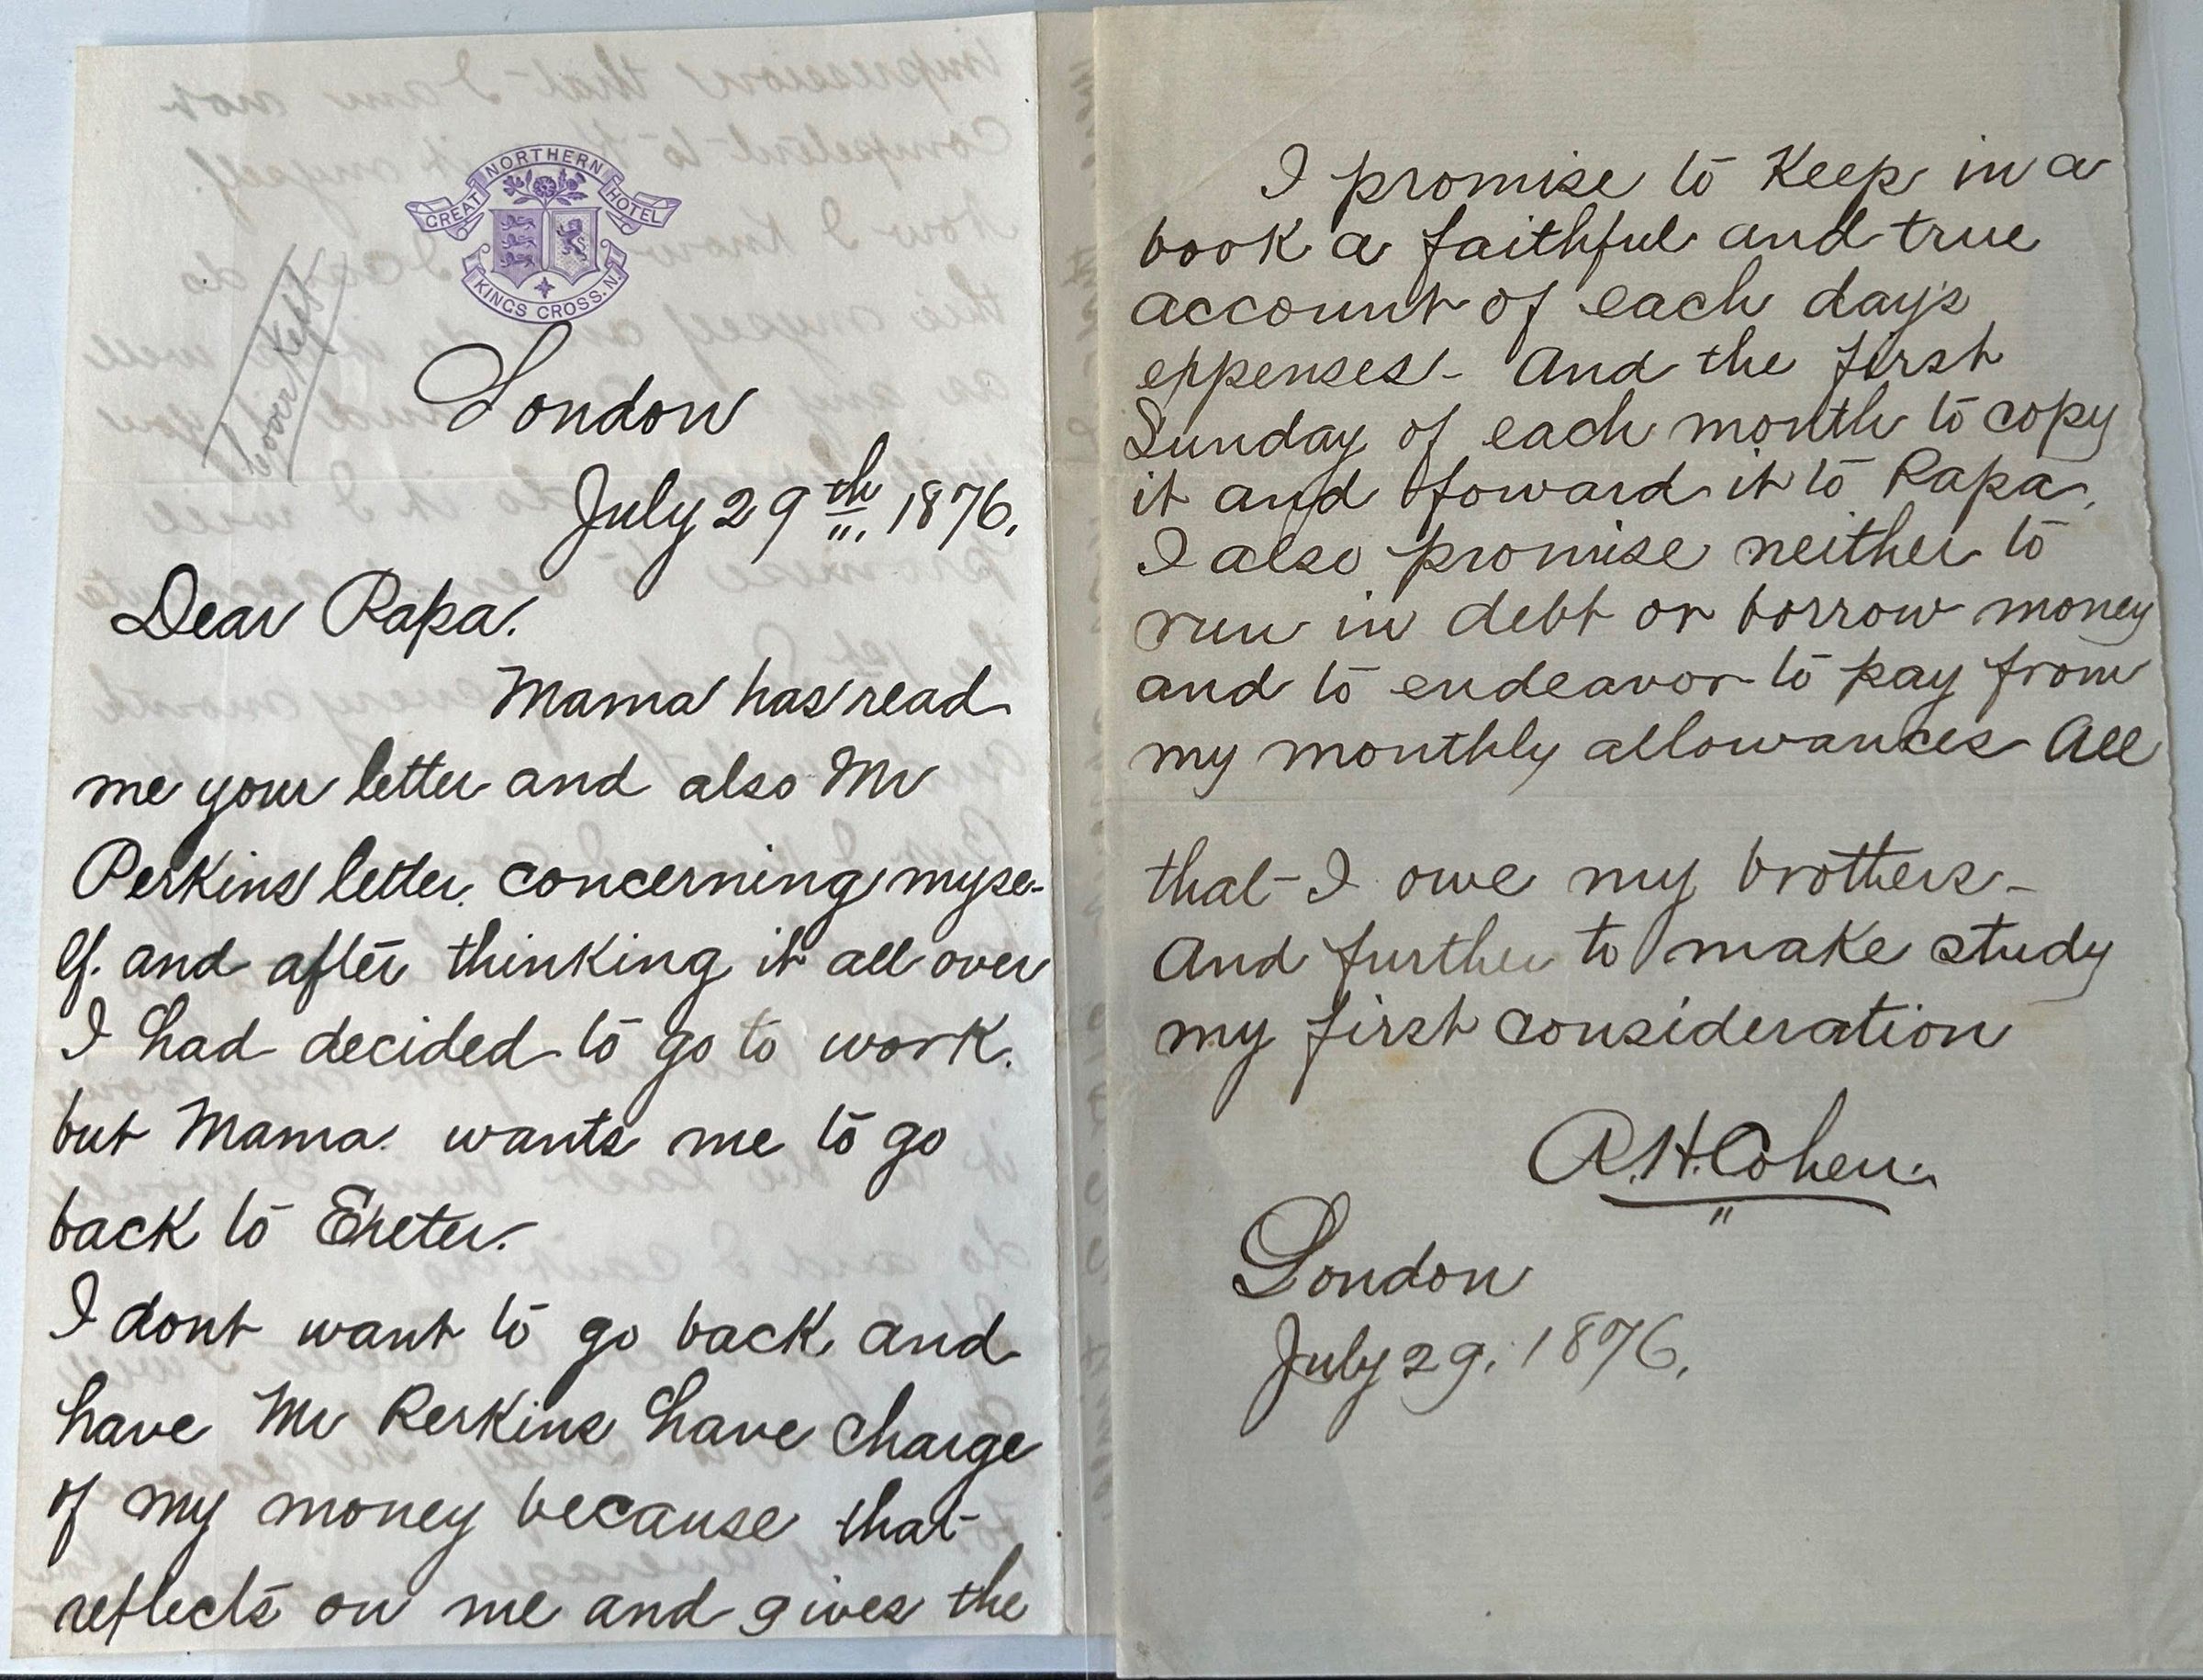 GREAT NORTHERN HOTEL
KINGS CROSS. N.
London
July 29th, 1876.
Dear Papa.
Mama has read
me your letter and also Mr
Perkins letter. concerning myse-
lf. and after thinking it all over
I had decided to go to work.
but Mama. wants me to go
back to Exeter.
I dont want to go back and
have Mr Perkins have charge
of my money because that
reflects on me and gives the
I promise to Keep in a
book a faithful and true
account of each day's
expenses - And the first
Sunday of each month to copy
it and foward it to Papa.
I also promise neither to
run in debt or borrow money
and to endeavor to pay from
my monthly allowances All
that I owe my brothers -
And further to make study
my first consideration
A.H. Cohen.
London
July 29. 1876.